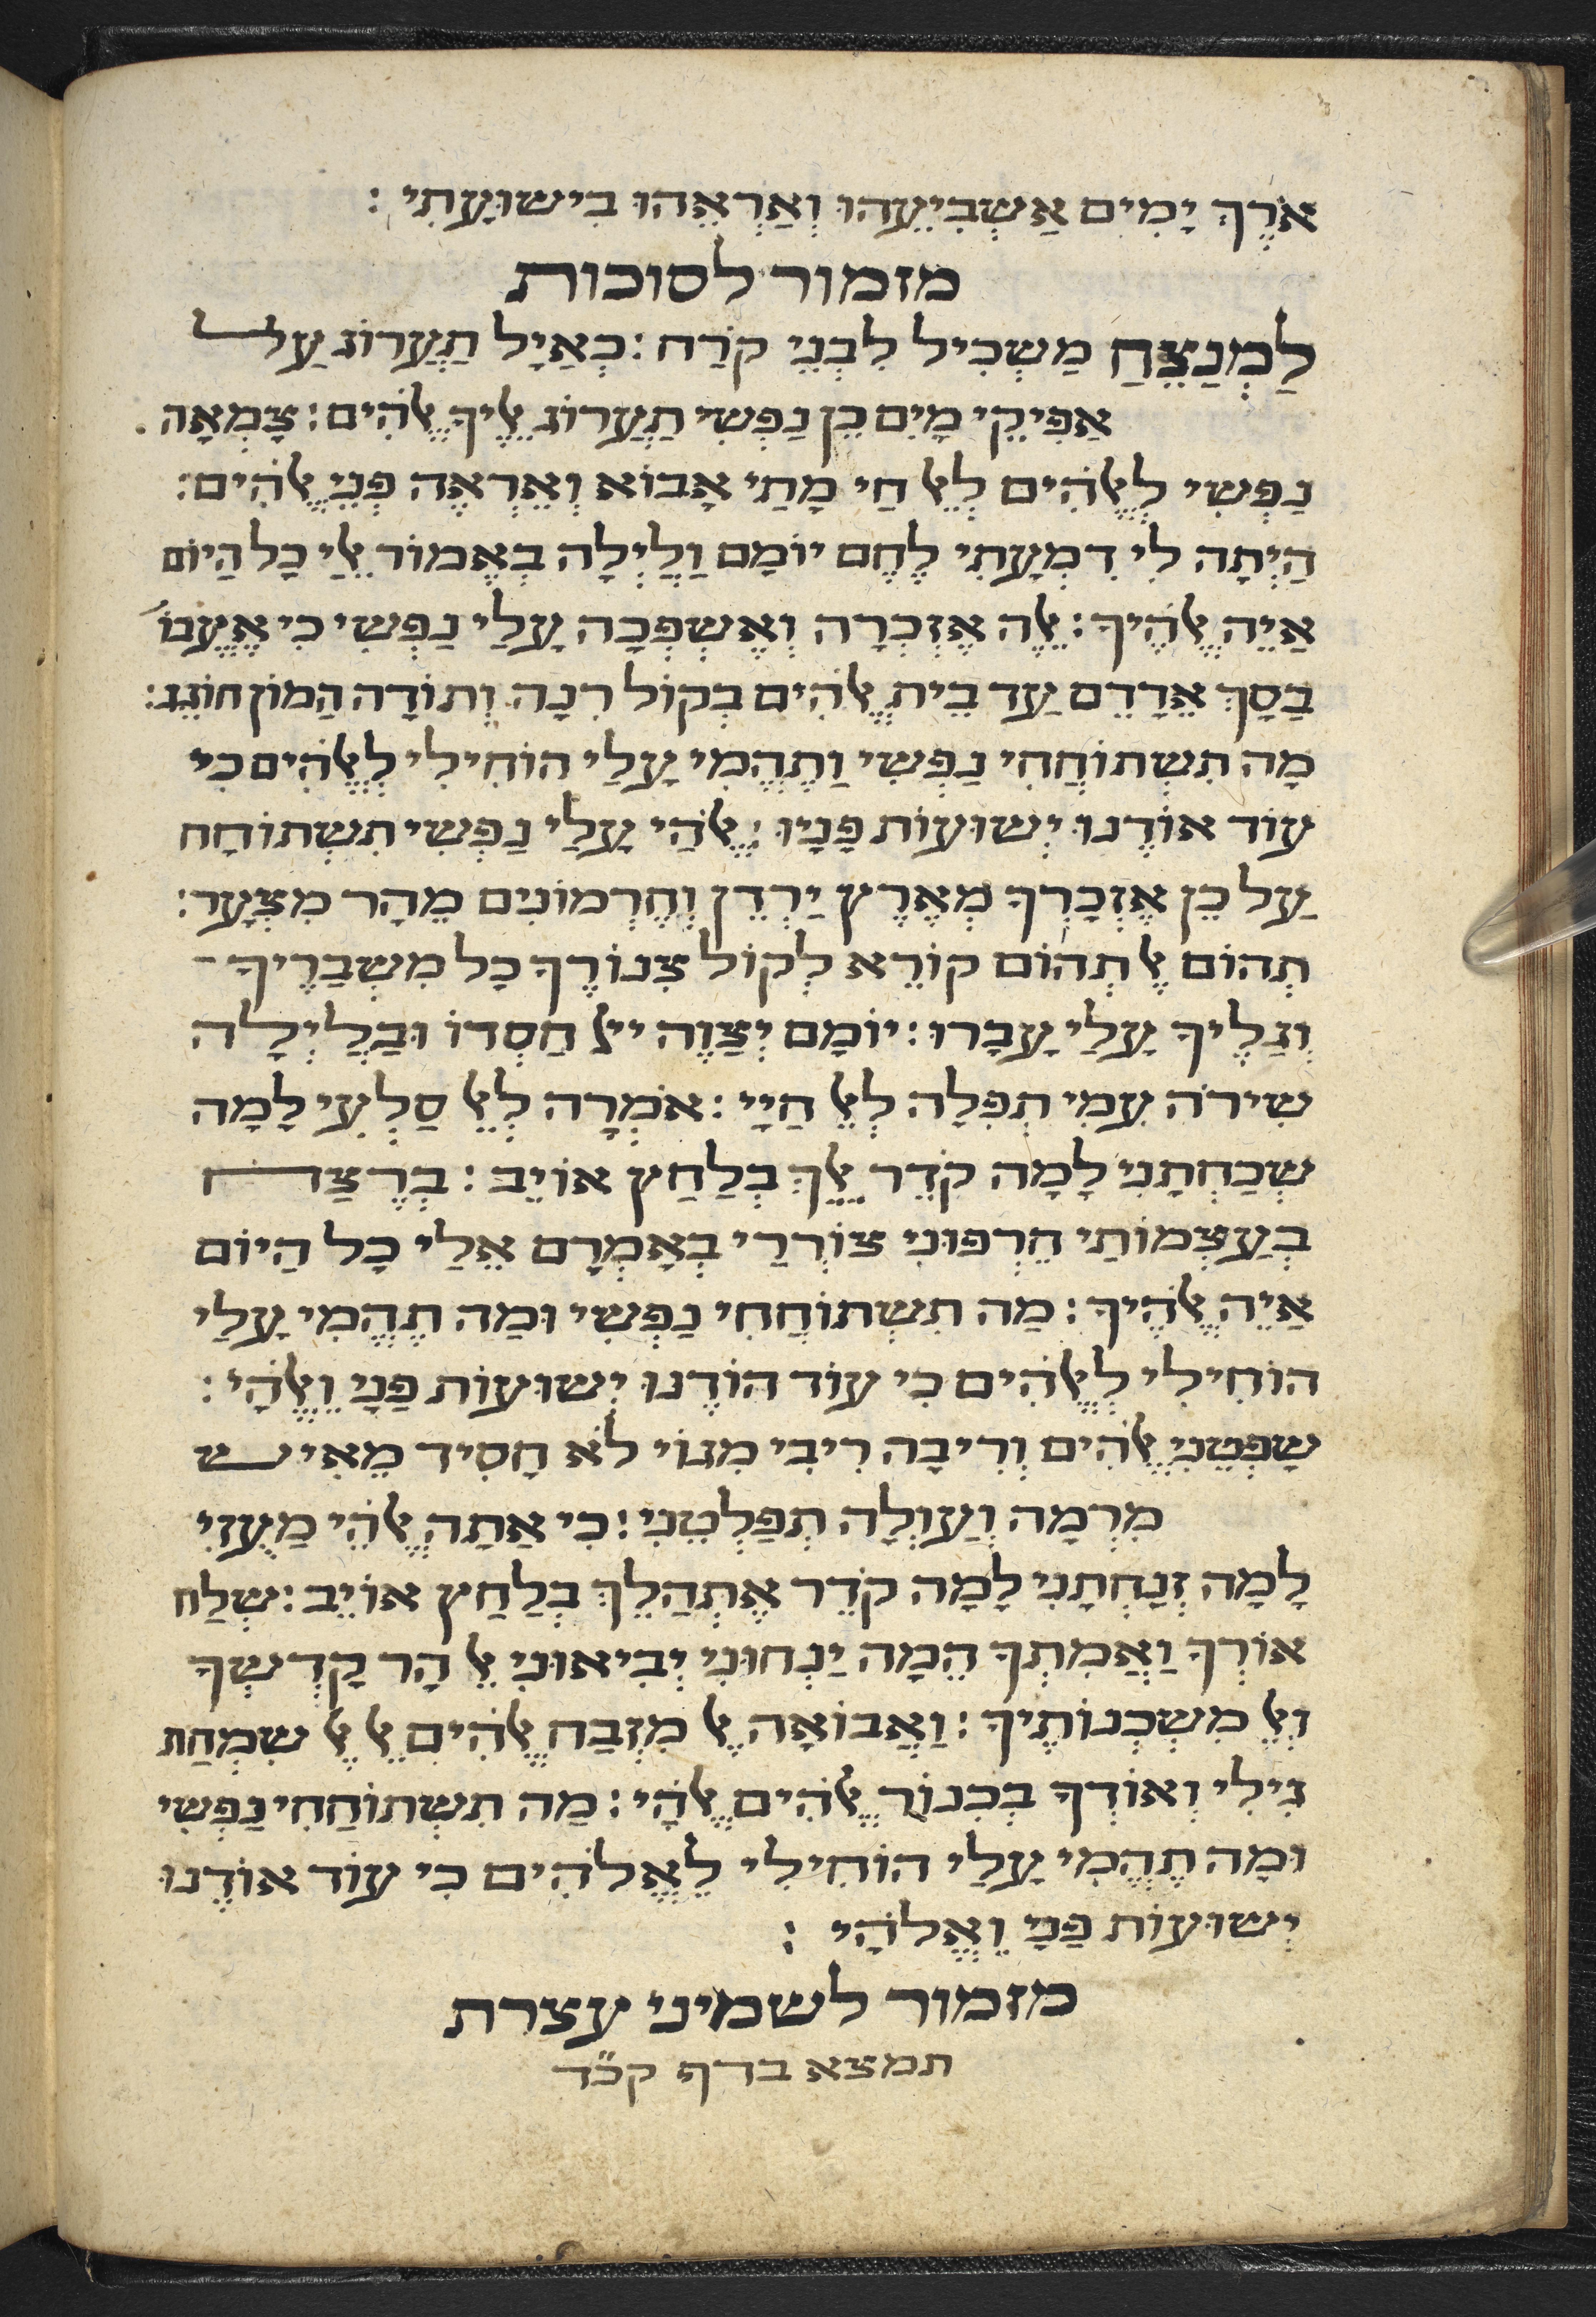 אֹרֶךְ יָמִים אַשְׂבִּיעֵהוּ וְאַרְאֵהוּ בִּישׁוּעָתִי :
מזמור לסוכות
לַמְנַצֵּחַ מַשְׂכִּיל לִבְנֵי קֹרַח : כְּאַיָל תַּעֲרוֹג עַל
אֲפִיקֵי מָיִם כֵּן נַפְשִׁי תַעֲרוֹג אֵלֶיךָ אֱלֹהִים : צָמְאָה
נַפְשִׁי לֵאלֹהִים לְאֵל חַי מָתַי אָבוֹא וְאֵרָאֶה פְּנֵי אֱלֹהִים :
הָיְתָה לִי דִמְעָתִי לֶחֶם יוֹמָם וָלַיְלָה בֶּאֱמוֹר אֵלַי כָּל הַיּוֹם
אַיֵּה אֱלֹהֶיךָ : אֵלֶּה אֶזְכְּרָה וְאֶשְׁפְּכָה עָלַי נַפְשִׁי כִּי אֶעֱבוֹ
בַסָּךְ אֶדַּדֵּם עַד בֵּית אֱלֹהִים בְּקוֹל רִנָּה וְתוֹדָה הָמוֹן חוֹגֵג :
מַה תִּשְׁתּוֹחֲחִי נַפְשִׁי וַתֶּהֱמִי עָלַי הוֹחִילִי לֵאלֹהִים כִּי
עוֹד אוֹדֶנּוּ יְשׁוּעוֹת פָּנָיו : אֱלֹהַי עָלַי נַפְשִׁי תִשְׁתּוֹחָח
עַל כֵּן אֶזְכָּרְךָ מֵאֶרֶץ יַרְדֵּן וְחֶרְמוֹנִים מֵהַר מִצְעָר :
תְּהוֹם אֶל תְּהוֹם קוֹרֵא לְקוֹל צִנּוֹרֶךָ כָּל מִשְׁבָּרֶיךָ
וְגַלֶּיךָ עָלַי עָבָרוּ : יוֹמָם יְצַוֶּה ייָ חַסְדּוֹ וּבַלַּיְלָה
שִׁירֹה עִמִּי תְּפִלָּה לְאֵל חַיָּי : אֹמְרָה לְאֵל סַלְעִי לָמָה
שְׁכַחְתָּנִי לָמָּה קֹדֵר אֵלֵךְ בְּלַחַץ אוֹיֵב : בְּרֶצַח
בְּעַצְמוֹתַי חֵרְפוּנִי צוֹרְרַי בְּאָמְרָם אֵלַי כָּל הַיּוֹם
אַיֵּה אֱלֹהֶיךָ : מַה תִּשְׁתּוֹחֲחִי נַפְשִׁי וּמַה תֶּהֱמִי עָלַי
הוֹחִילִי לֵאלֹהִים כִּי עוֹד הוֹדֶנּוּ יְשׁוּעוֹת פָּנַי וֵאלֹהָי :
שָׁפְטֵנִי אֱלֹהִים וְרִיבָה רִיבִי מִגּוֹי לֹא חָסִיד מֵאִישׁ
מִרְמָה וְעַוְלָה תְפַלְּטֵנִי : כִּי אַתָּה אֱלֹהֵי מָעֻזִּי
לָמָה זְנַחְתָּנִי לָמָּה קֹדֵר אֶתְהַלֵּךְ בְּלַחַץ אוֹיֵב : שְׁלַח
אוֹרְךָ וַאֲמִתְּךָ הֵמָּה יַנְחוּנִי יְבִיאוּנִי אֶל הַר קָדְשְׁךָ
וְאֶל מִשְׁכְּנוֹתֶיךָ : וְאָבוֹאָה אֶל מִזְבַּח אֱלֹהִים אֶל אֵל שִׂמְחַת
גִּילִי וְאוֹדְךָ בְכִנּוֹר אֱלֹהִים אֱלֹהָי : מַה תִּשְׁתּוֹחֲחִי נַפְשִׁי
וּמַה תֶּהֱמִי עָלַי הוֹחִילִי לֵאֱלֹהִים כִּי עוֹד אוֹדֶנּוּ
יְשׁוּעוֹת פָּנַי וֵאֱלֹהָי :
מזמור לשמיני עצרת
תמצא בדף קכ״ד